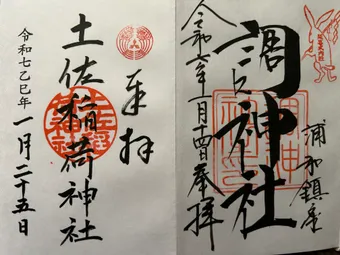 奉拝
土佐稲荷神社
令和七乙巳年
一月二十五日
浦和鎮座
調神社
令和六年一月十四日奉拝